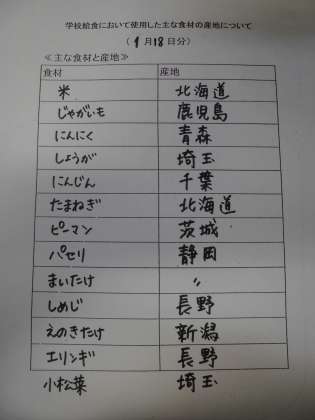 学校給食において使用した主な食材の産地について
(9月18日分)
≪主な食材と産地≫
食材 産地
米 北海道
じゃがいも 鹿児島
にんにく 青森
しょうが 埼玉
にんじん 千葉
たまねぎ 北海道
ピーマン 茨城
パセリ 静岡
まいたけ 〃
しめじ 長野
えのきたけ 新潟
エリンギ 長野
小松菜 埼玉